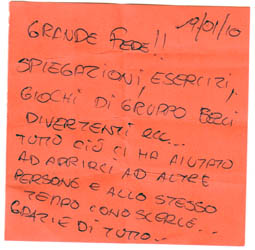 19/01/10
GRANDE FEDE!!
SPIEGAZIONI, ESERCIZI,
GIOCHI DI GRUPPO BELLI
DIVERTENTI ECC...
TUTTO CIÒ CI HA AIUTATO
AD APRIRCI AD ALTRE
PERSONE E ALLO STESSO
TEMPO CONOSCERLE...
GRAZIE DI TUTTO...